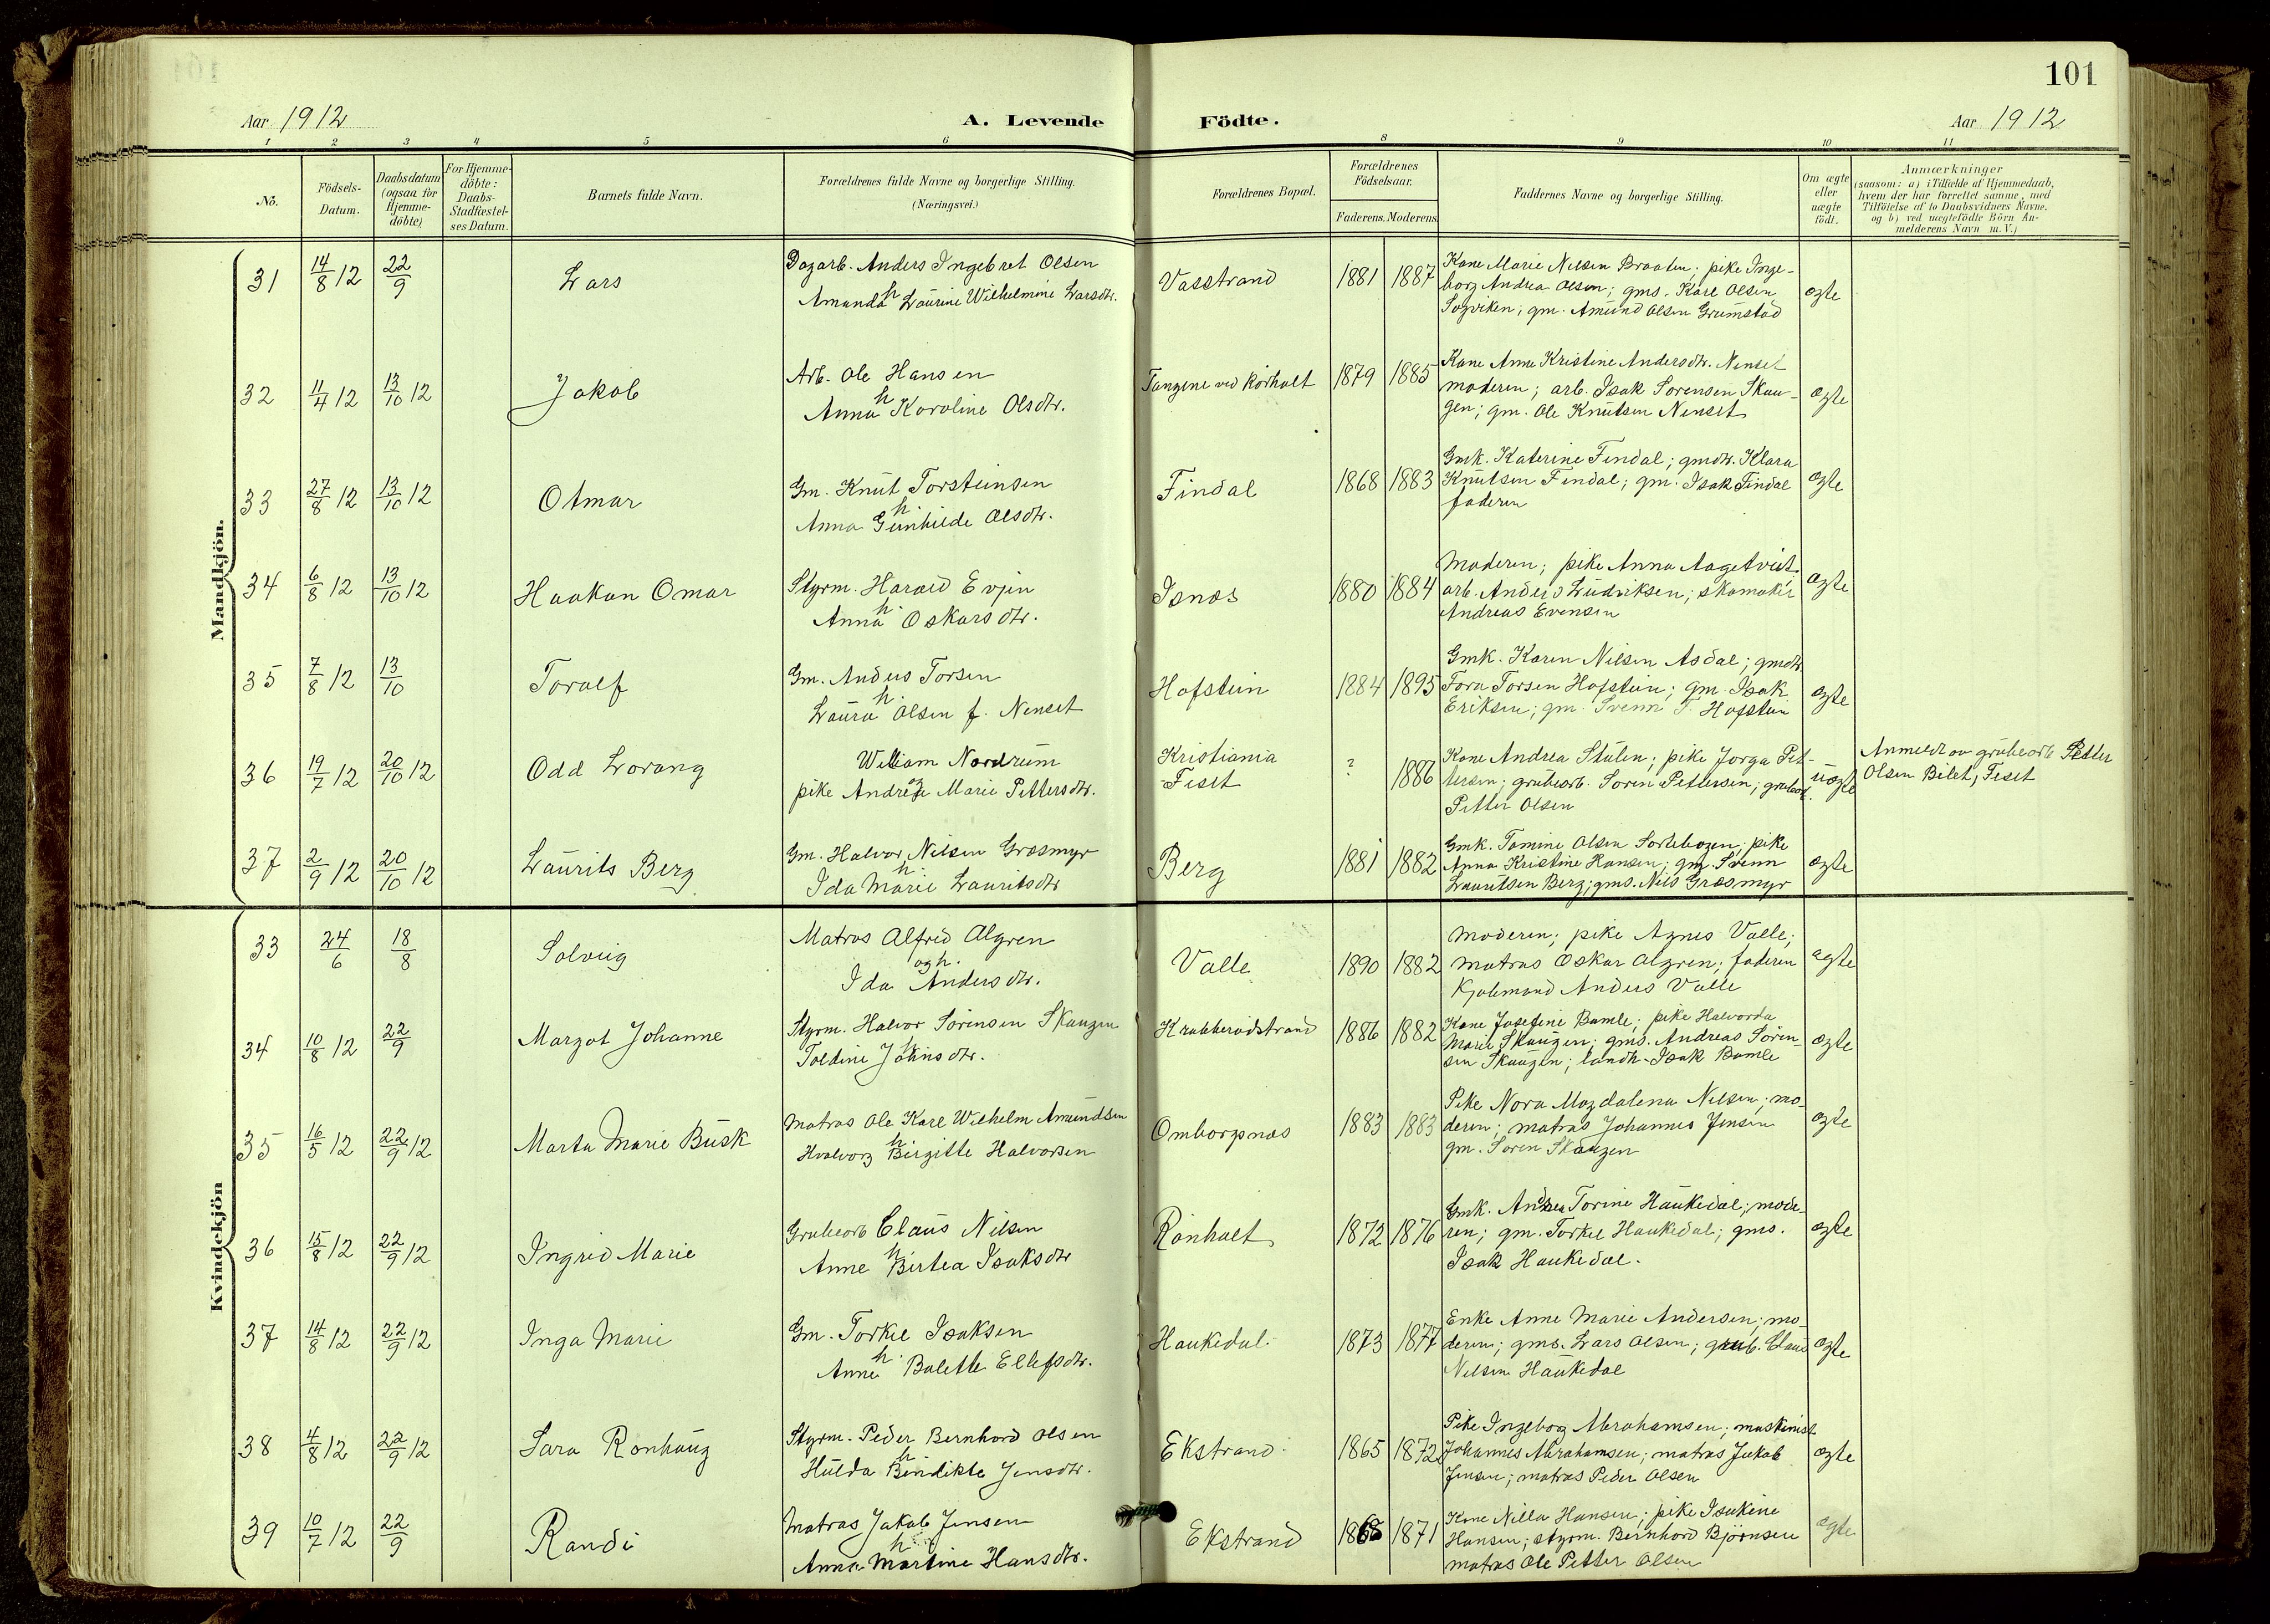 101
Aar 1912
A. Levende
Födte.
Aar 1912
1 2 3 4 5 6 8 9 10 11
No.
Födsels-
Datum.
Daabsdatum
(ogsaa for
Hjemme-
döbte)
For Hjemme-
döbte:
Daabs-
Stadfæstel-
ses Datum.
Barnets fulde Navn.
Forældrenes fulde Navne og borgerlige Stilling.
(Næringsvei.)
Forældrenes Bopæl.
Forældrenes
Födselsaar.
Faderens. Moderens.
Faddernes Navne og borgerlige Stilling.
Om ægte
eller
uægte
födt.
Anmærkninger
(saasom: a) i Tilfælde af Hjemmedaab,
hvem der har forrettet samme, med
Tilföielse af to Daabsvidners Navne.
og b) ved uægtefödte Börn An-
melderens Navn m. V.)
Mandkjön.
31 14/8 12 22/9 Lars
Dagarb. Anders Ingebret Olsen
h
Amanda Laurine Wilhelmine Larsdtr.
Vasstrand 1881 1887
Kone Marie Nilsen Braaten; pike Inge-
borg Andrea Olsen; gms. Karl Olsen
Sogviken; gm. Amund Olsen Grumstad
ægte
32 11/4 12 13/10 12 Jakob
Arb. Ole Hansen
h
Anna Karoline Olsdtr.
Tangene ved Kørholt 1879 1885
Kone Anne Kristine Andersdtr. Nenset
moderen; arb. Isak Sørensen Skau-
gen; gm. Ole Knutsen Nenset
ægte
33 27/8 12 13/10 12 Otmar
Gm. Knut Torsteinsen
h
Anna Gunhilde Olsdtr.
Findal 1868 1883
Gmk. Katerine Findal; gmdtr. Klara
Knutsen Findal; gm. Isak Findal
faderen
ægte
34 6/8 12 13/10 12 Haakon Omar
Styrm. Harald Evjen
h
Anna Oskarsdtr.
Isnes 1880 1884
Moderen; pike Anna Aagetveit
arb. Anders Ludviksen; skomaker
Andreas Evensen
ægte
35 7/8 12 13/10 Toralf
Gm. Anders Torsen
h
Laura Olsen f. Nenset
Hafstein 1884 1895
Gmk. Karen Nilsen Asdal; gmdtr
Tora Torsen Hafstein; gm. Isak
Eriksen; gm. Svenn T. Hafstein
ægte
36 19/7 12 20/10 12 Odd Lorang
William Nordrum
og
pike Andrea Marie Pettersdtr.
Kristiania
Feset
? 1886
Kone Andrea Stulen; pike Jorga Pet-
tersen; grubearb. Søren Pettersen; grubearb.
Petter Olsen
uægte
Anmeldt av grubearb Petter
Olsen Bilet, Feset
37 2/9 12 20/10 12 Laurits Berg
Gm. Halvor Nilsen Græsmyr
h
Ida Marie Lauritsdtr
Berg 1881 1882
Gmk. Tomine Olsen Sortebogen; pike
Anna Kristine Hansen; gm. Svenn
Lauritsen Berg; gms. Nils Græsmyr
ægte
Kvindekjön
33 24/6 18/8 Solveig
Matros Alfred Algren
og h.
Ida Andersdtr.
Valle 1890 1882
Moderen; pike Agnes Valle;
matros Oskar Algren; faderen
Kjølemand Anders Valle
ægte
34 10/8 12 22/9 Margot Johanne
Styrm. Halvor Sørensen Skaugen
h
Toldine Johnsdtr.
Krabberødstrand 1886 1882
Kone Josefine Bamle; pike Halvorda
Marie Skaugen; gms. Andreas Søren-
sen Skaugen; landh. Isak Bamle
ægte
35 16/5 12 22/9 12 Marta Marie Busk
Matros Ole Karl Wilhelm Amundsen
h
Hvalvorg Birgitte Halvorsen
Omborgsnæs 1883 1883
Pike Nora Magdalena Nilsen; mo-
deren; matros Johannes Jensen
gm. Søren Skaugen
ægte
36 15/8 12 22/9 12 Ingrid Marie
Grubearb Claus Nilsen
h
Anne Birtea Isaksdtr
Rønholt 1872 1876
Gmk. Andrea Torine Haukedal; mode-
ren; gm. Torkel Haukedal; gms.
Isak Haukedal.
ægte
37 14/8 12 22/9 12 Inga Marie
Gm. Torkel Isaksen
h
Anne Bolette Ellefsdtr.
Haukedal 1873 1877
Enke Anne Marie Andersen; mo-
deren; gms. Lars Olsen; grub. Claus
Nilsen Haukedal
ægte
38 4/8 12 22/9 12 Sara Ronhaug
Styrm. Peder Bernhard Olsen
h
Hulda Bendikte Jensdtr.
Ekstrand 1865 1872
Pike Ingeborg Abrahamsen; maskinist
Johannes Abrahamsen; matros Jakob
Jensen; matros Peder Olsen
ægte
39 10/7 12 22/9 Randi
Matros Jakob Jensen
h
Anna Martine Hansdtr.
Ekstrand 1868 1871
Kone Nilla Hansen; pike Isakine
Hansen; styrm. Bernhard Bjørnsen
matros Ole Petter Olsen
ægte